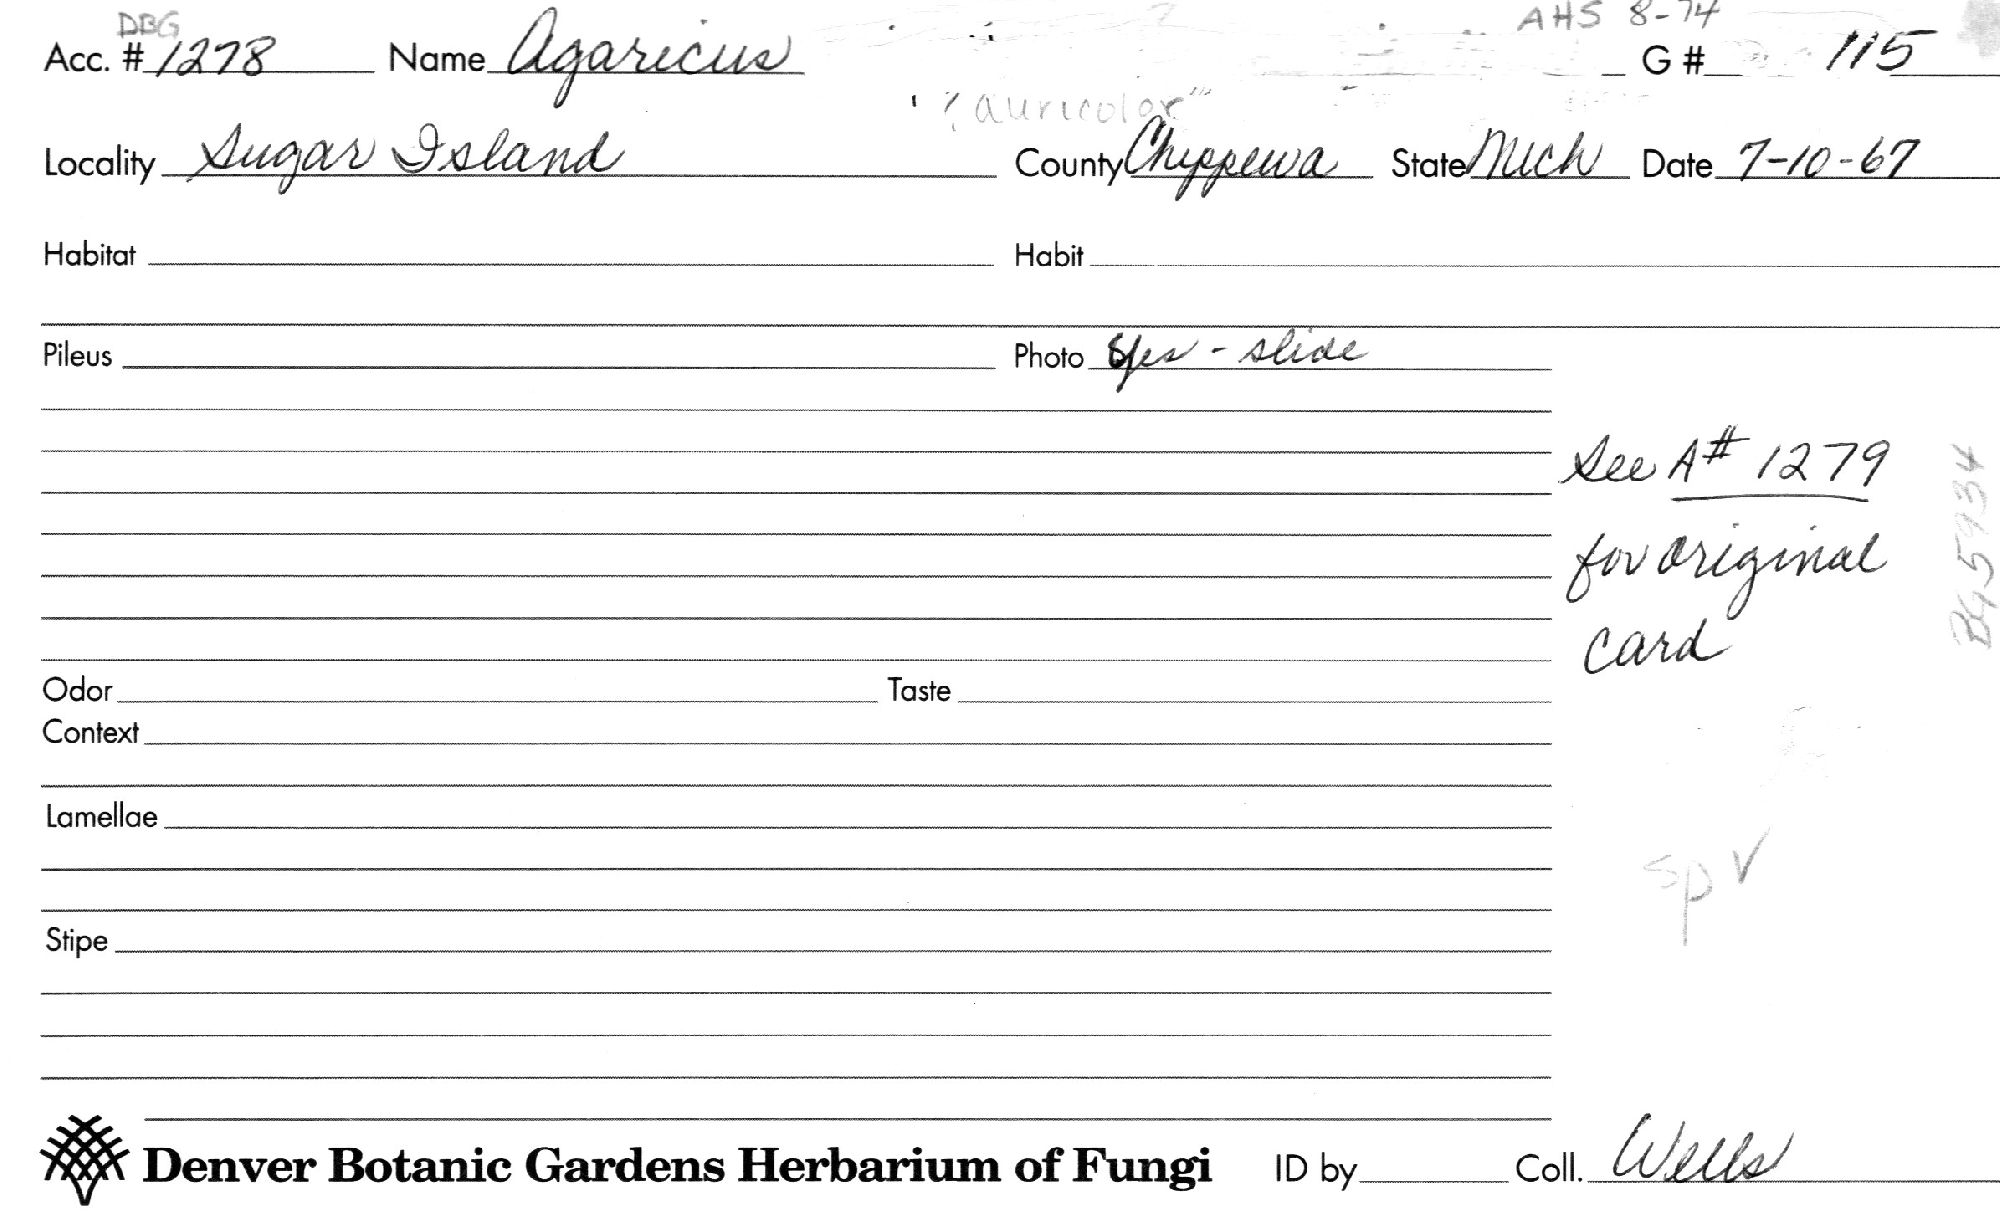 DBG AHS 8-74
Acc. # 1278 Name Agaricus G # 115
? auricolor"
Locality Sugar Island County Chippewa State Mich Date 7-10-67
Habitat Habit
Pileus Photo yes - slide
See A# 1279
for original
card
BG5934
Odor Taste
Context
Lamellae
sp √
Stipe
Denver Botanic Gardens Herbarium of Fungi ID by Coll. Wells